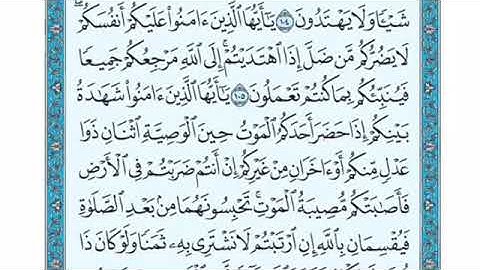 شَيْـًٔا وَلَا يَهْتَدُونَ ١٠٤ يَـٰٓأَيُّهَا ٱلَّذِينَ ءَامَنُوا۟ عَلَيْكُمْ أَنفُسَكُمْ
لَا يَضُرُّكُم مَّن ضَلَّ إِذَا ٱهْتَدَيْتُمْ ۚ إِلَى ٱللَّهِ مَرْجِعُكُمْ جَمِيعًا
فَيُنَبِّئُكُم بِمَا كُنتُمْ تَعْمَلُونَ ١٠٥ يَـٰٓأَيُّهَا ٱلَّذِينَ ءَامَنُوا۟ شَهَـٰدَةُ
بَيْنِكُمْ إِذَا حَضَرَ أَحَدَكُمُ ٱلْمَوْتُ حِينَ ٱلْوَصِيَّةِ ٱثْنَانِ ذَوَا
عَدْلٍ مِّنكُمْ أَوْ ءَاخَرَانِ مِنْ غَيْرِكُمْ إِنْ أَنتُمْ ضَرَبْتُمْ فِى ٱلْأَرْضِ
فَأَصَـٰبَتْكُم مُّصِيبَةُ ٱلْمَوْتِ ۚ تَحْبِسُونَهُمَا مِنۢ بَعْدِ ٱلصَّلَوٰةِ
فَيُقْسِمَانِ بِٱللَّهِ إِنِ ٱرْتَبْتُمْ لَا نَشْتَرِى بِهِۦ ثَمَنًا وَلَوْ كَانَ ذَا